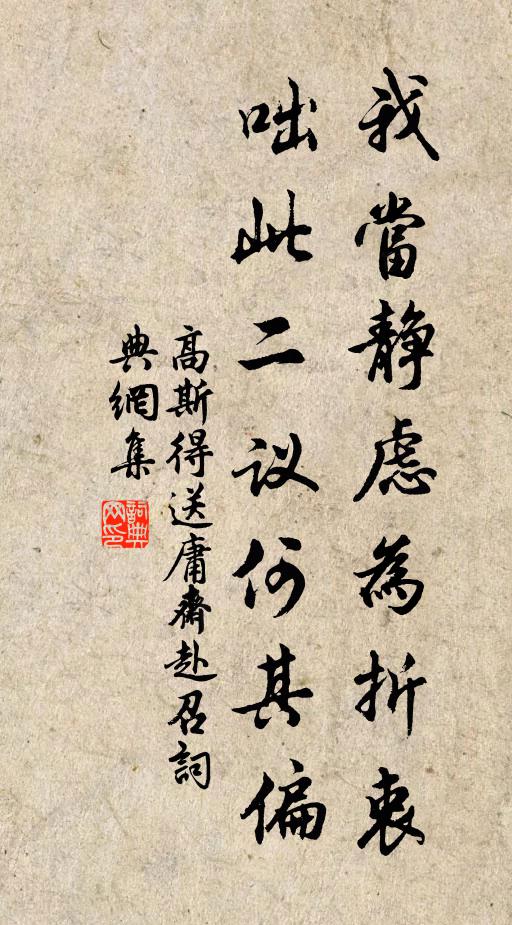 我當静慮為折衷
咄此二议何其偏
高斯得送庸齋赴召詞
典網集
詞典
网印